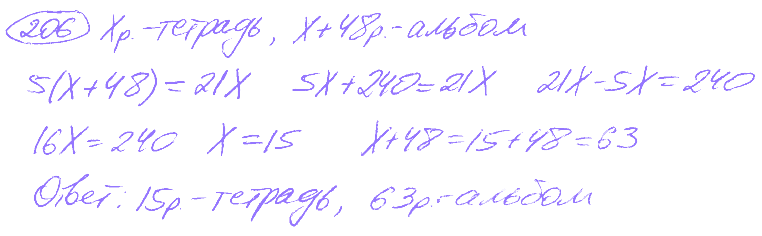 206 Xр.-тетрадь, X+48р.-альбом
5(X+48)=21X 5X+240=21X 21X-5X=240
16X=240 X=15 X+48=15+48=63
Ответ: 15р.-тетрадь, 63р.-альбом